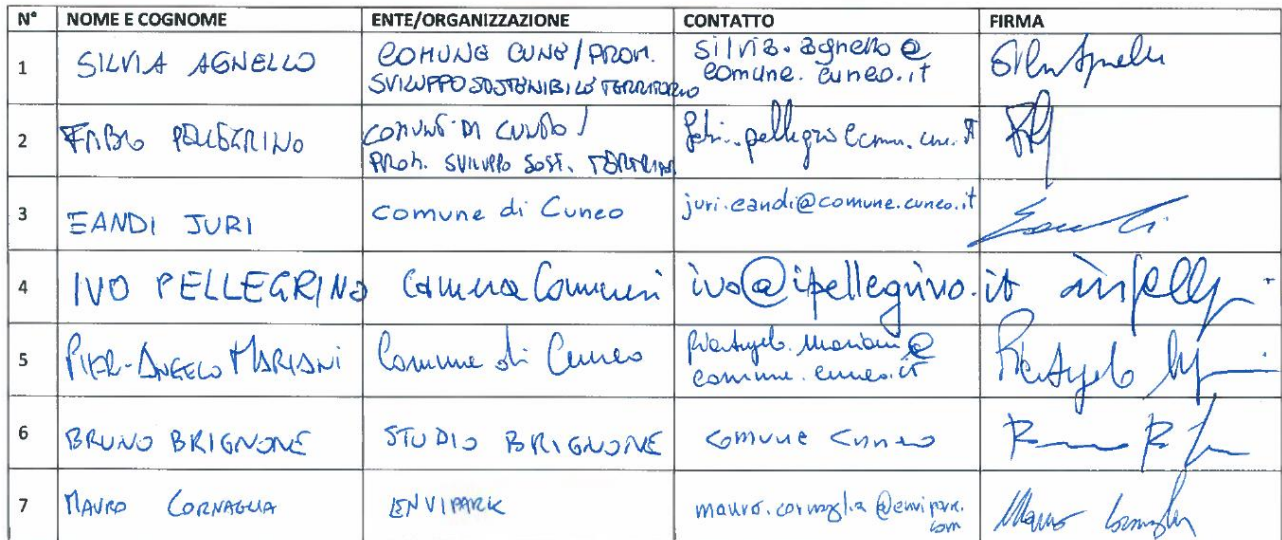 N° NOME E COGNOME ENTE/ORGANIZZAZIONE CONTATTO FIRMA
1 SILVIA AGNELLO COMUNE CUNEO/PROM. silvia.agnello@
SVILUPPO SOSTENIBILE TERRITORIO comune.cuneo.it
2 FABIO PELLEGRINO COMUNE DI CUNEO/
PROM. SVILUPPO SOST. TERRITORIO
3 EANDI JURI comune di Cuneo juri.eandi@comune.cuneo.it
4 IVO PELLEGRINO Camera Commerci ivo@ipellegrino.it
5 PIER-ANGELO MARIANI Comune di Cuneo pierangelo.mariani@
comune.cuneo.it
6 BRUNO BRIGNONE STUDIO BRIGNONE comune Cuneo
7 MAURO CORNAGLIA ENVIPARK mauro.cornaglia@envipark.
com Mauro Cornaglia